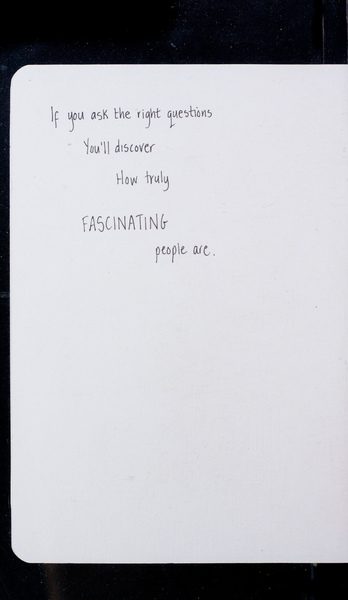 If you ask the right questions
You'll discover
How truly
FASCINATING
people are.